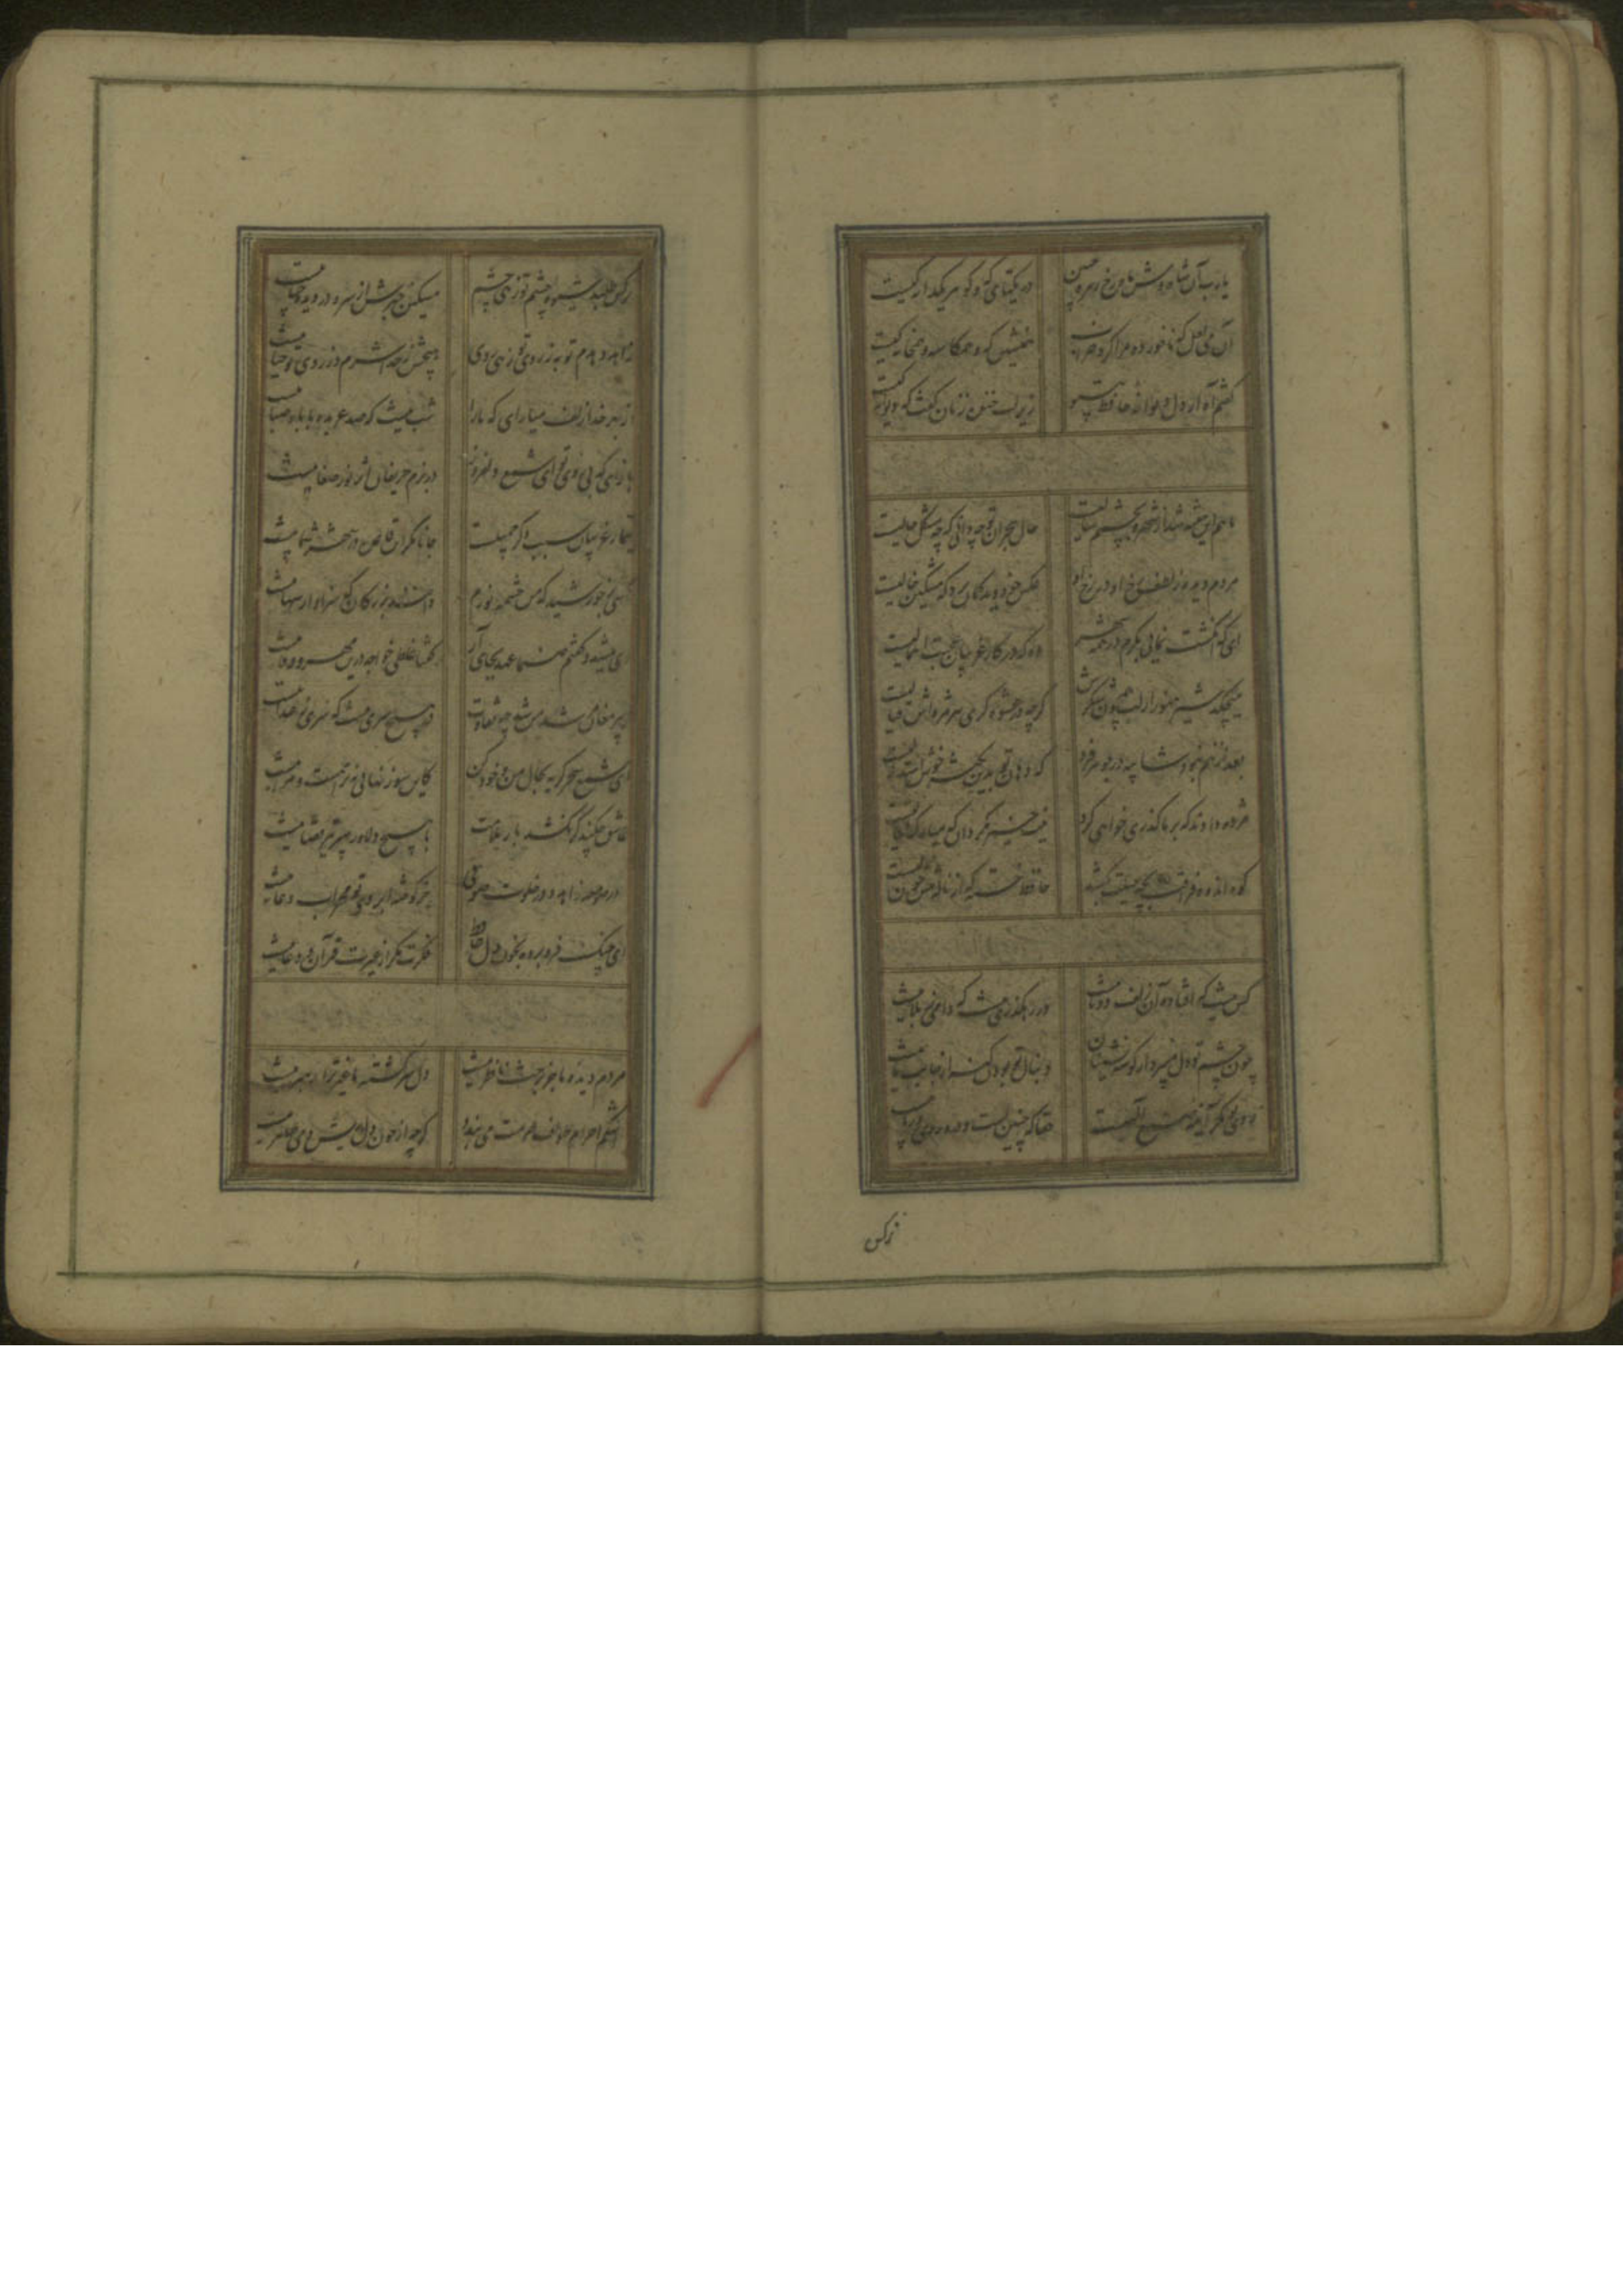 یا رب آن شاه وش ماه رخ زهره جبین در یکتای که و گوهر یکدانه کیست
آن می لعل که ناخورده مرا کرد خراب همنشین که و همکاسه و پیمانه کیست
گفتم آه از دل دیوانه حافظ بی تو زیر لب خنده زنان گفت که دیوانه کیست
ماهم این هفته شد از شهر و بچشمم سالیست حال هجران تو چه دانی که چه مشکل حالیست
مردم دیده ز لطف رخ او در رخ او عکس خود دید گمان برد که مشکین خالیست
ای که انگشت نمایی بکرم در همه شهر وه که در کار غریبان عجبت اهمالیست
میچکد شیر هنوز از لب همچون شکرش گرچه در عشوه گری هر مژه اش قتالیست
بعد ازینم نبود شایبه در جوهر فرد که دهان تو بدین نکته خوش استدلالیست
مژده دادند که بر ما گذری خواهی کرد نیت خیر مگردان که مبارک فالیست
کوه اندوه فراقت بچه حیلت بکشد حافظ خسته که از ناله تنش چون نالیست
کس نیست که افتاده آن زلف دوتا نیست در رهگذری نیست که دامی ز بلا نیست
چون چشم تو دل میبرد از گوشه نشینان دنبال تو بودن گنه از جانب ما نیست
روی تو مگر آینه صنع الهیست حقا که چنین است و درین روی و ریا نیست
نرگس
نرگس طلبد شیوه چشم تو زهی چشم مسکین خبرش از سر و در دیده حیا نیست
زاهد دهدم توبه ز روی تو زهی روی هیچش ز خدا شرم و ز روی تو حیا نیست
از بهر خدا زلف میارای که ما را شب نیست که صد عربده با باد صبا نیست
باز آی که بی روی تو ای شمع دلفروز در بزم حریفان اثر نور صفا نیست
تیمار غریبان سبب ذکر جمیلست جانا مگر این قاعده در شهر شما نیست
دی میشد و گفتم صنما عهد بجای آر گفتا غلطی خواجه درین عهد وفا نیست
گر پیر مغان مرشد من شد چه تفاوت در هیچ سری نیست که سری ز خدا نیست
عاشق چکند گر نکشد بار ملامت با هیچ دلاور سپر تیر قضا نیست
در صومعه زاهد و در خلوت صوفی جز گوشه ابروی تو محراب دعا نیست
ای چنگ فرو برده بخون دل حافظ فکرت مگر از غیرت قرآن و خدا نیست
مردم دیده ما جز برخت ناظر نیست دل سرگشته ما غیر ترا ذاکر نیست
اشکم احرام طواف حرمت می بندد گرچه از خون دل ریش دمی طاهر نیست